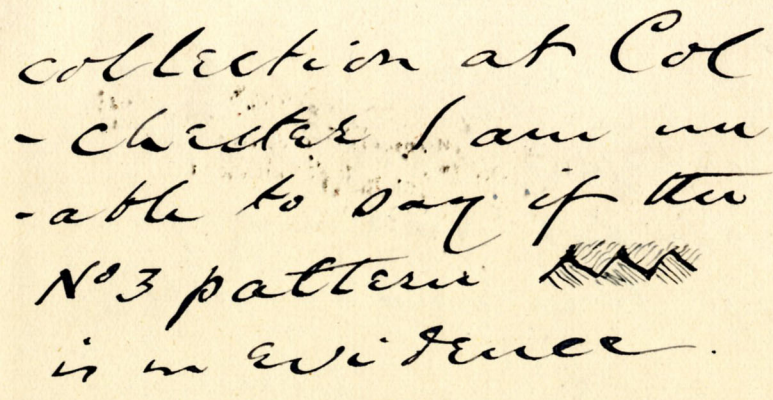 collection at Col
-chester I am un
-able to say if the
No 3 pattern
is in evidence.